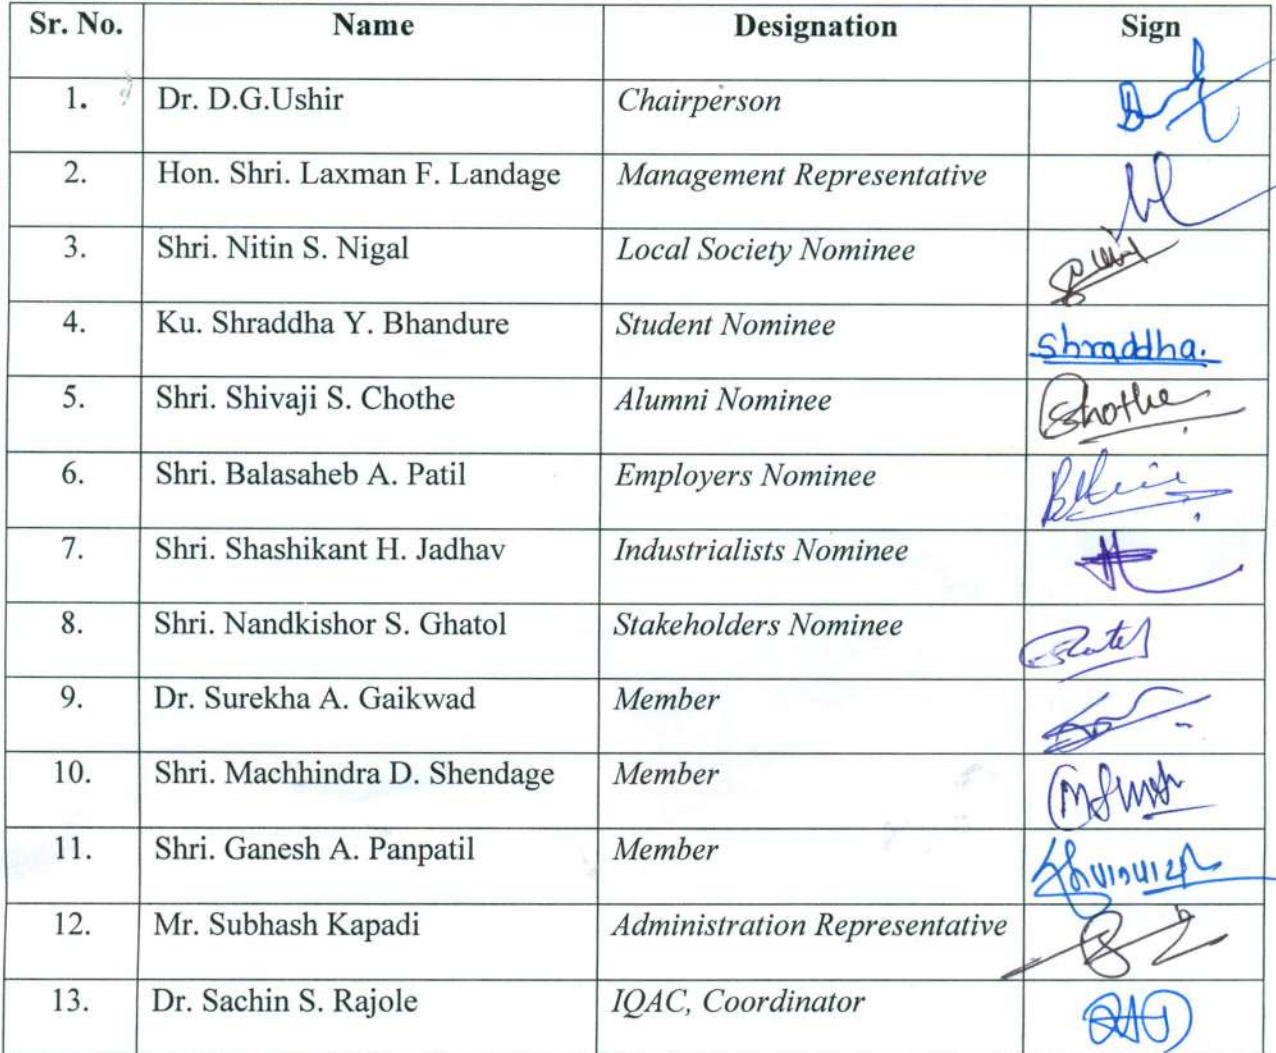 Sr. No. Name Designation Sign
1. Dr. D.G.Ushir Chairperson
2. Hon. Shri. Laxman F. Landage Management Representative
3. Shri. Nitin S. Nigal Local Society Nominee
4. Ku. Shraddha Y. Bhandure Student Nominee Shraddha.
5. Shri. Shivaji S. Chothe Alumni Nominee
6. Shri. Balasaheb A. Patil Employers Nominee
7. Shri. Shashikant H. Jadhav Industrialists Nominee
8. Shri. Nandkishor S. Ghatol Stakeholders Nominee
9. Dr. Surekha A. Gaikwad Member
10. Shri. Machhindra D. Shendage Member
11. Shri. Ganesh A. Panpatil Member
12. Mr. Subhash Kapadi Administration Representative
13. Dr. Sachin S. Rajole IQAC, Coordinator